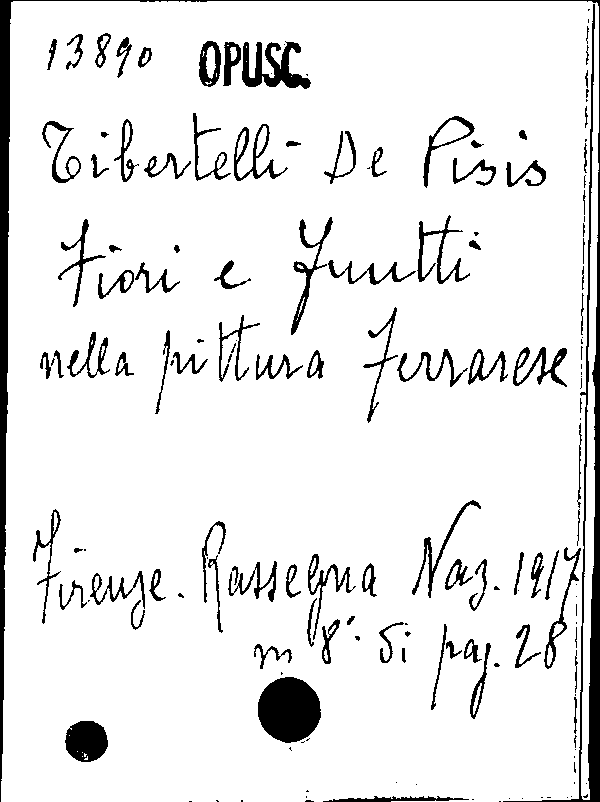 13890 OPUSC.
Tibertelli De Pisis
Fiori e frutti
nella pittura Ferrarese
Firenze. Rassegna Naz. 1917
in 8°. di pag. 28